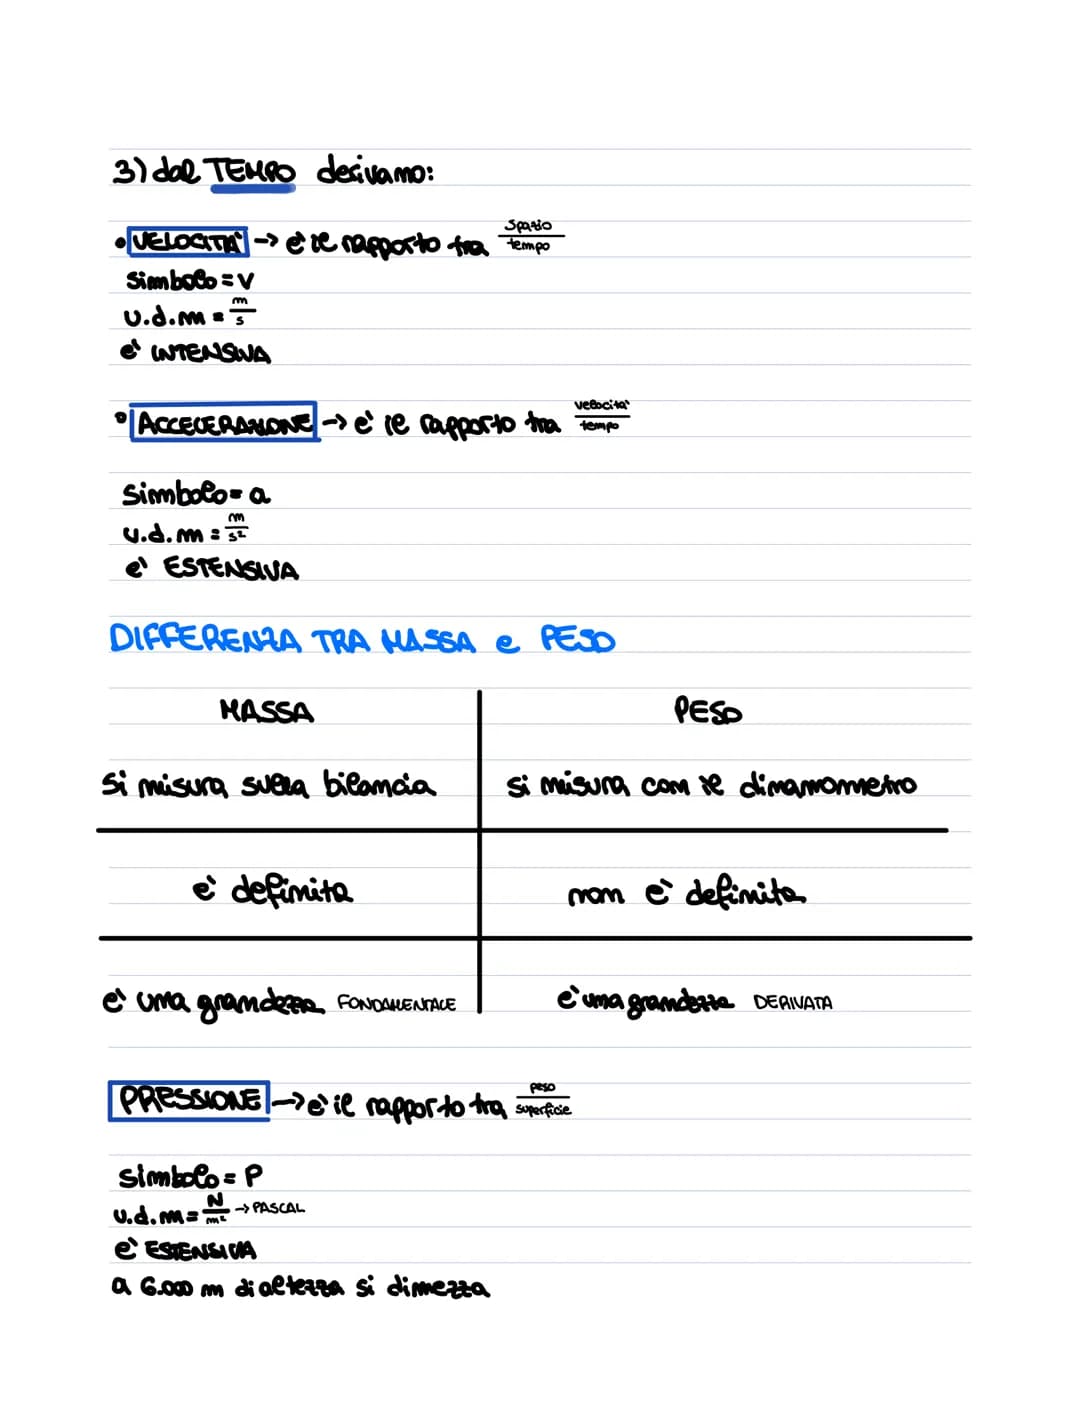 3) dal TEMPO derivamo:
• VELOCITÀ -> è il rapporto tra spazio/tempo
simbolo = v
u.d.m = m/s
è INTENSIVA
• ACCELERAZIONE -> è il rapporto tra velocità/tempo
simbolo = a
u.d.m = m/s²
è ESTENSIVA
DIFFERENZA TRA MASSA e PESO
MASSA PESO
si misura sulla bilancia si misura con il dinamometro
è definita non è definita
è una grandezza FONDAMENTALE è una grandezza DERIVATA
PRESSIONE -> è il rapporto tra peso/superficie
simbolo = P
u.d.m = N/m² -> PASCAL
è ESTENSIVA
a 6.000 m di altezza si dimezza